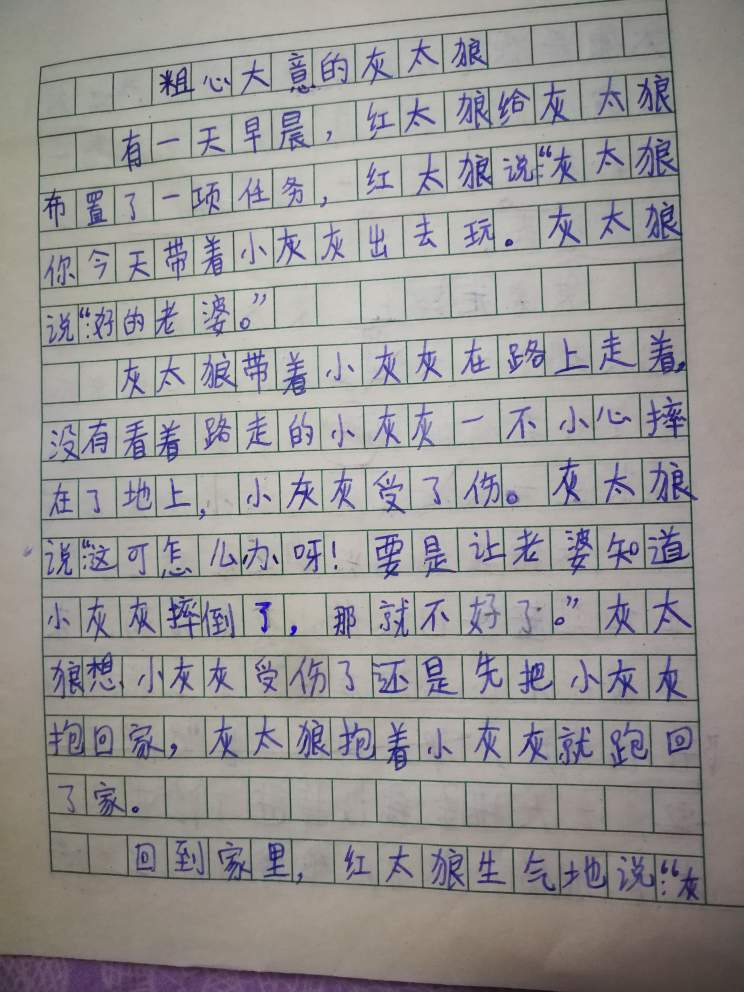 粗心大意的灰太狼
有一天早晨，红太狼给灰太狼
布置了一项任务，红太狼说：“灰太狼
你今天带着小灰灰出去玩。灰太狼
说：“好的老婆。”
灰太狼带着小灰灰在路上走着，
没有看着路走的小灰灰一不小心摔
在了地上，小灰灰受了伤。灰太狼
说：“这可怎么办呀！要是让老婆知道
小灰灰摔倒了，那就不好了。”灰太
狼想，小灰灰受伤了还是先把小灰灰
抱回家，灰太狼抱着小灰灰就跑回
了家。
回到家里，红太狼生气地说：“灰